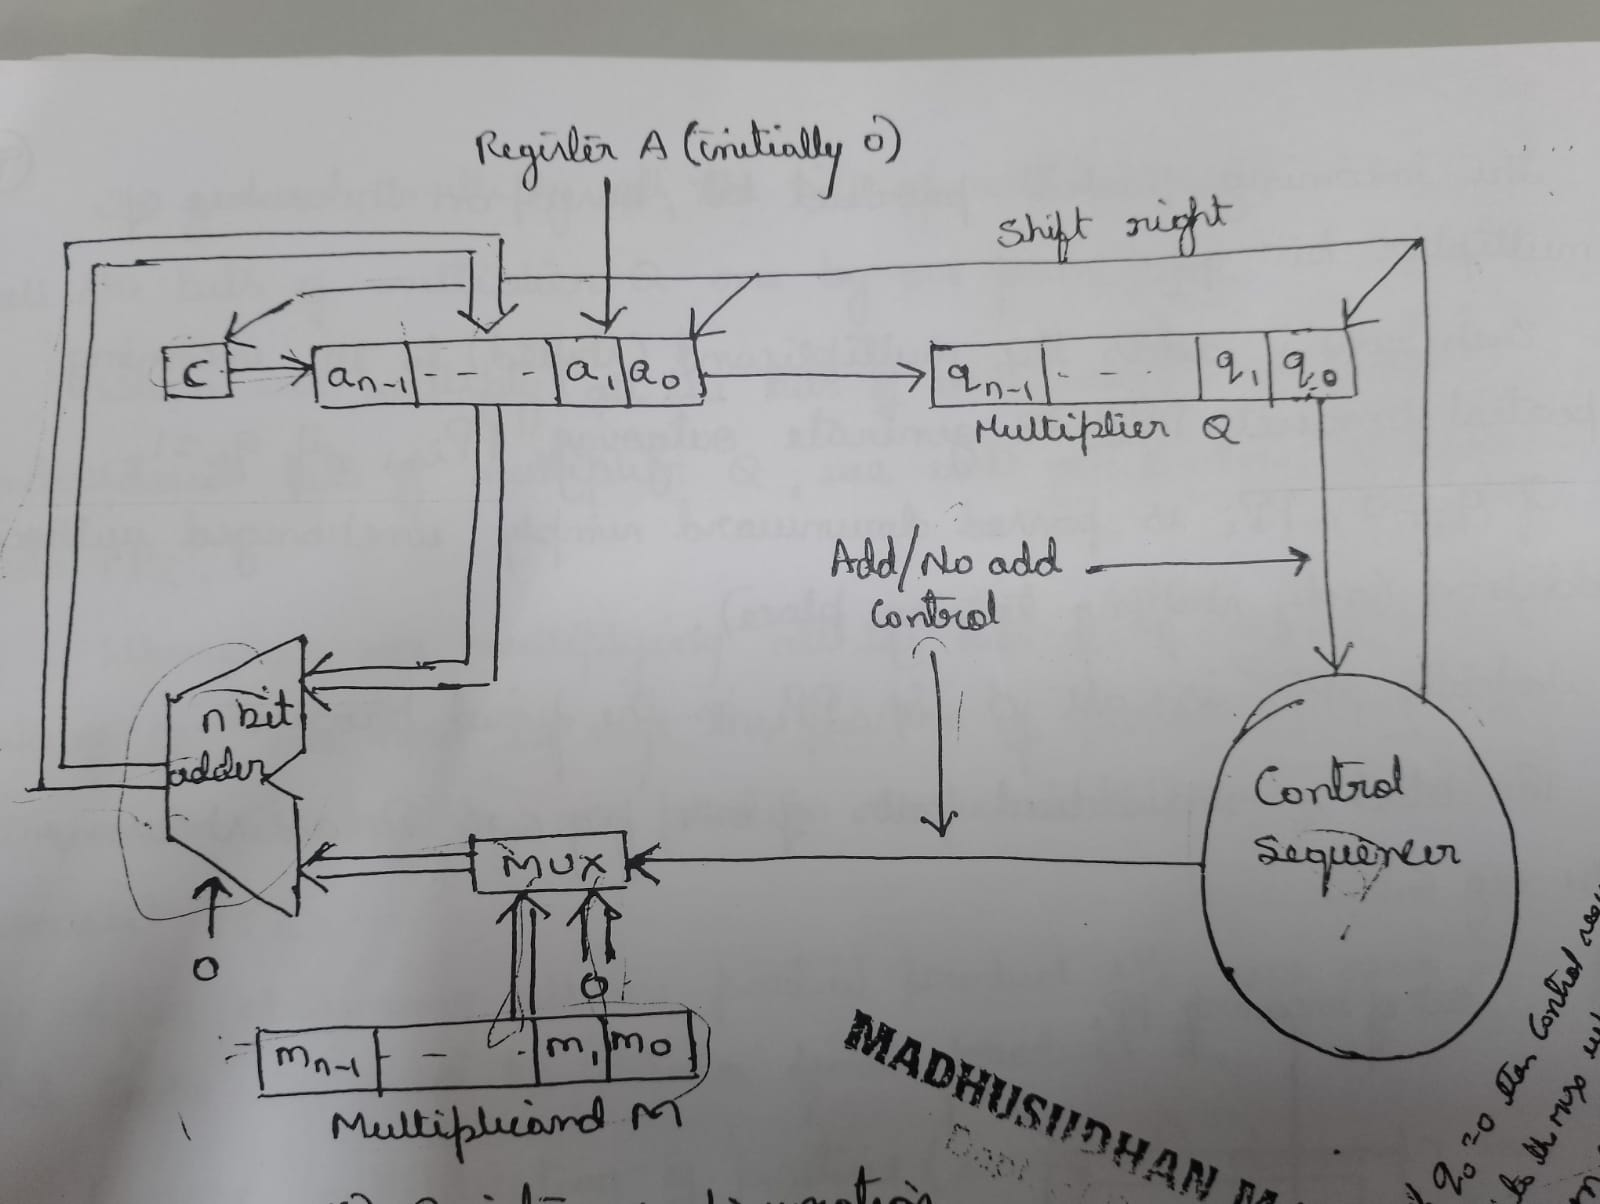 Register A (initially 0)
Shift right
C
an-1 - - - a1 a0
qn-1 - - - q1 q0
Multiplier Q
Add/No add
Control
n bit
adder
Control
Sequencer
MUX
0
0
mn-1 - - - m1 m0
Multiplicand M
MADHUSUDHAN M
Dept
q0 = 0 then Control
to the mux